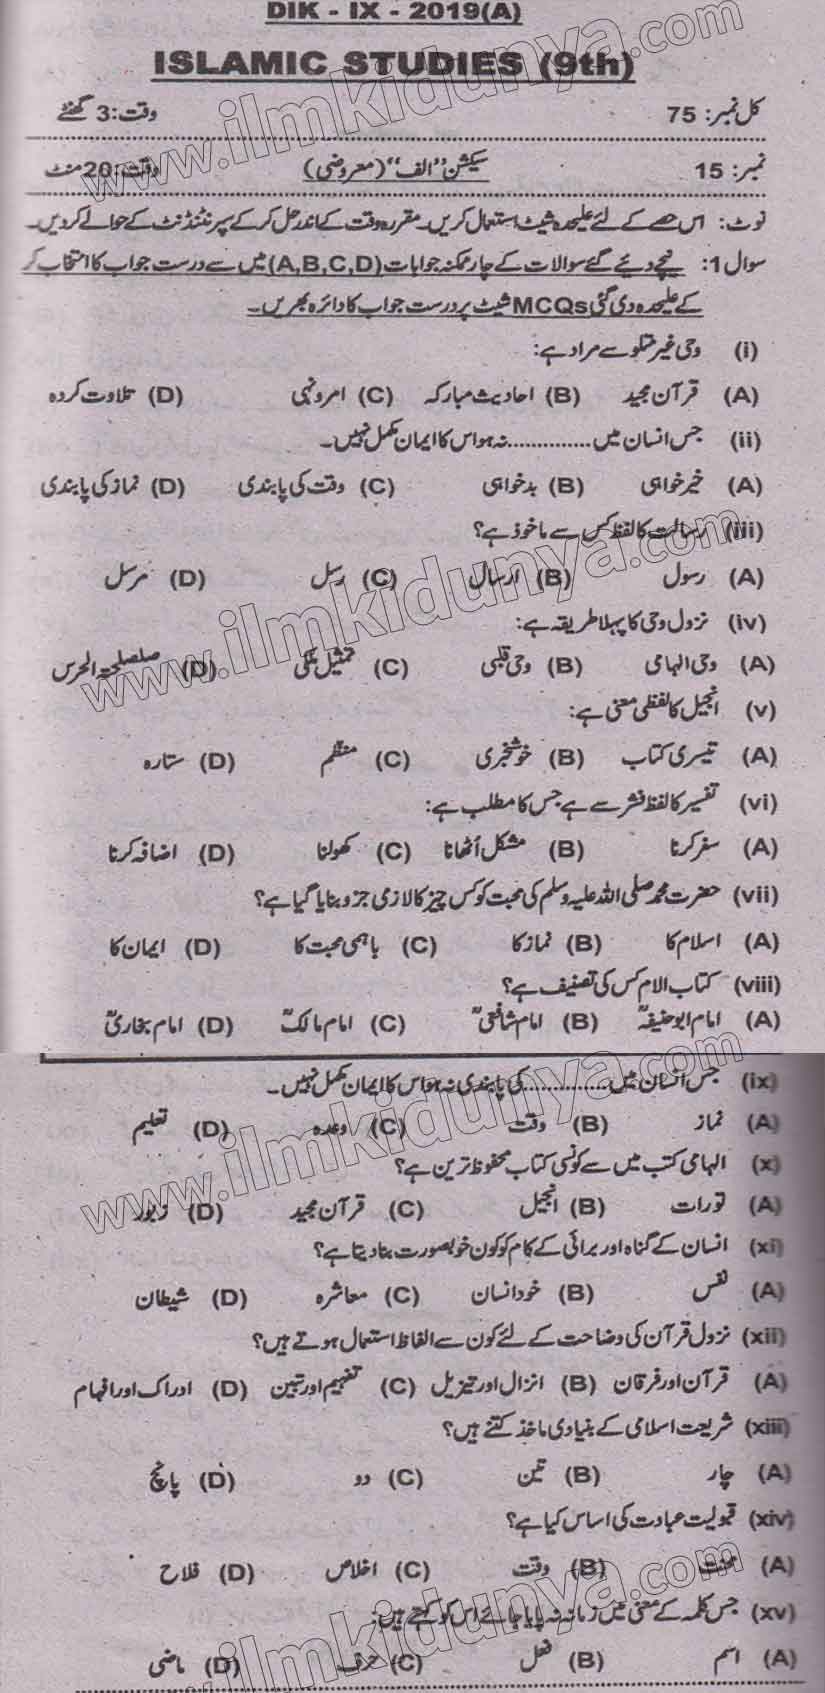 DIK - IX - 2019(A)
ISLAMIC STUDIES (9th)
کل نمبر: 75 وقت: 3 گھنٹے
نمبر: 15 سیکشن "الف" (معروضی) وقت: 20 منٹ
نوٹ: اس حصے کے لئے علیحدہ شیٹ استعمال کریں۔ مقررہ وقت کے اندر حل کر کے سپرنٹنڈنٹ کے حوالے کر دیں۔
سوال 1: نیچے دیئے گئے سوالات کے چار ممکنہ جوابات (A,B,C,D) میں سے درست جواب کا انتخاب کر
کے علیحدہ دی گئی MCQs شیٹ پر درست جواب کا دائرہ بھریں۔
(i) وحی غیر متلو سے مراد ہے:
(A) قرآن مجید (B) احادیث مبارکہ (C) امر و نہی (D) تلاوت کردہ
(ii) جس انسان میں .............. نہ ہو اس کا ایمان مکمل نہیں۔
(A) خیر خواہی (B) بد خواہی (C) وقت کی پابندی (D) نماز کی پابندی
(iii) رسالت کا لفظ کس سے ماخوذ ہے؟
(A) رسول (B) ارسال (C) رسل (D) مرسل
(iv) نزول وحی کا پہلا طریقہ ہے:
(A) وحی الہامی (B) وحی قلبی (C) تمثیل ملکی (D) صلصلۃ الجرس
(v) انجیل کا لفظی معنی ہے:
(A) تیسری کتاب (B) خوشخبری (C) منظم (D) ستارہ
(vi) تفسیر کا لفظ فسر سے ہے جس کا مطلب ہے:
(A) سفر کرنا (B) مشکل اُٹھانا (C) کھولنا (D) اضافہ کرنا
(vii) حضرت محمد صلی اللہ علیہ وسلم کی محبت کو کس چیز کا لازمی جزو بنایا گیا ہے؟
(A) اسلام کا (B) نماز کا (C) باہمی محبت کا (D) ایمان کا
(viii) کتاب الام کس کی تصنیف ہے؟
(A) امام ابو حنیفہؒ (B) امام شافعیؒ (C) امام مالکؒ (D) امام بخاریؒ
(ix) جس انسان میں .............. کی پابندی نہ ہو اس کا ایمان مکمل نہیں۔
(A) نماز (B) وقت (C) وعدہ (D) تعلیم
(x) الہامی کتب میں سے کونسی کتاب محفوظ ترین ہے؟
(A) تورات (B) انجیل (C) قرآن مجید (D) زبور
(xi) انسان کے گناہ اور برائی کے کام کو کون خوبصورت بنا دیتا ہے؟
(A) نفس (B) خود انسان (C) معاشرہ (D) شیطان
(xii) نزول قرآن کی وضاحت کے لئے کون سے الفاظ استعمال ہوتے ہیں؟
(A) قرآن اور فرقان (B) انزال اور تنزیل (C) تفہیم اور تبین (D) ادراک اور افہام
(xiii) شریعت اسلامی کے بنیادی ماخذ کتنے ہیں؟
(A) چار (B) تین (C) دو (D) پانچ
(xiv) قبولیت عبادت کی اساس کیا ہے؟
(A) محنت (B) وقت (C) اخلاص (D) فلاح
(xv) جس کلمہ کے معنی میں زمانہ نہ پایا جائے اس کو کہتے ہیں:
(A) اسم (B) فعل (C) حرف (D) ماضی
www.ilmkidunya.com
www.ilmkidunya.com
www.ilmkidunya.com
www.ilmkidunya.com